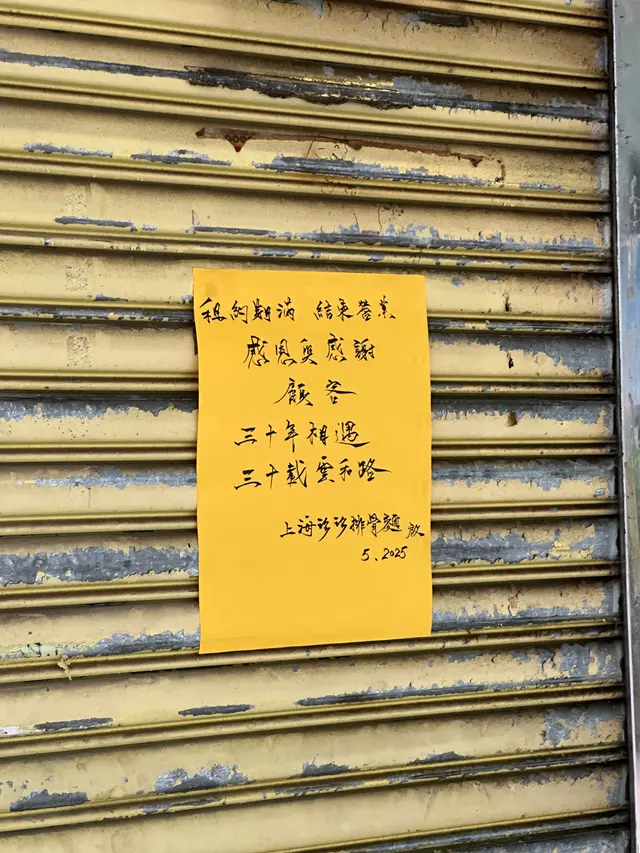 租約期滿 結束營業
感恩與感謝
顧客
三十年相遇
三十載雲和路
上海沙沙排骨麵 啟
5、2025